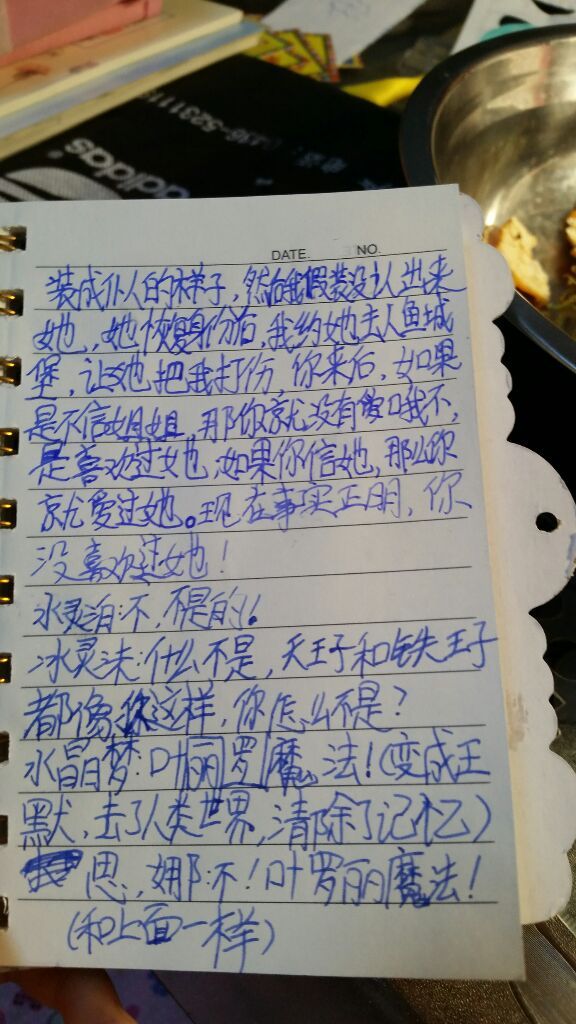 adidas
DATE. NO.
装成仆人的样子，然后我假装没认出来
她，她恢复身份后，我约她去人鱼城
堡，让她把我打伤，你来后，如果
是不信姐姐，那你就没有爱口我不，
是喜欢过她，如果你信她，那么你
就爱过她。现在事实正明，你
没喜欢过她！
水灵泊：不，不是的！
冰灵沫：什么不是，天王子和铁王子
都像你这样，你怎么不是？
水晶梦：叶丽罗魔法！（变成王
默，去了人类世界，清除了记忆）
思，娜：不！叶罗丽魔法！
（和上面一样）